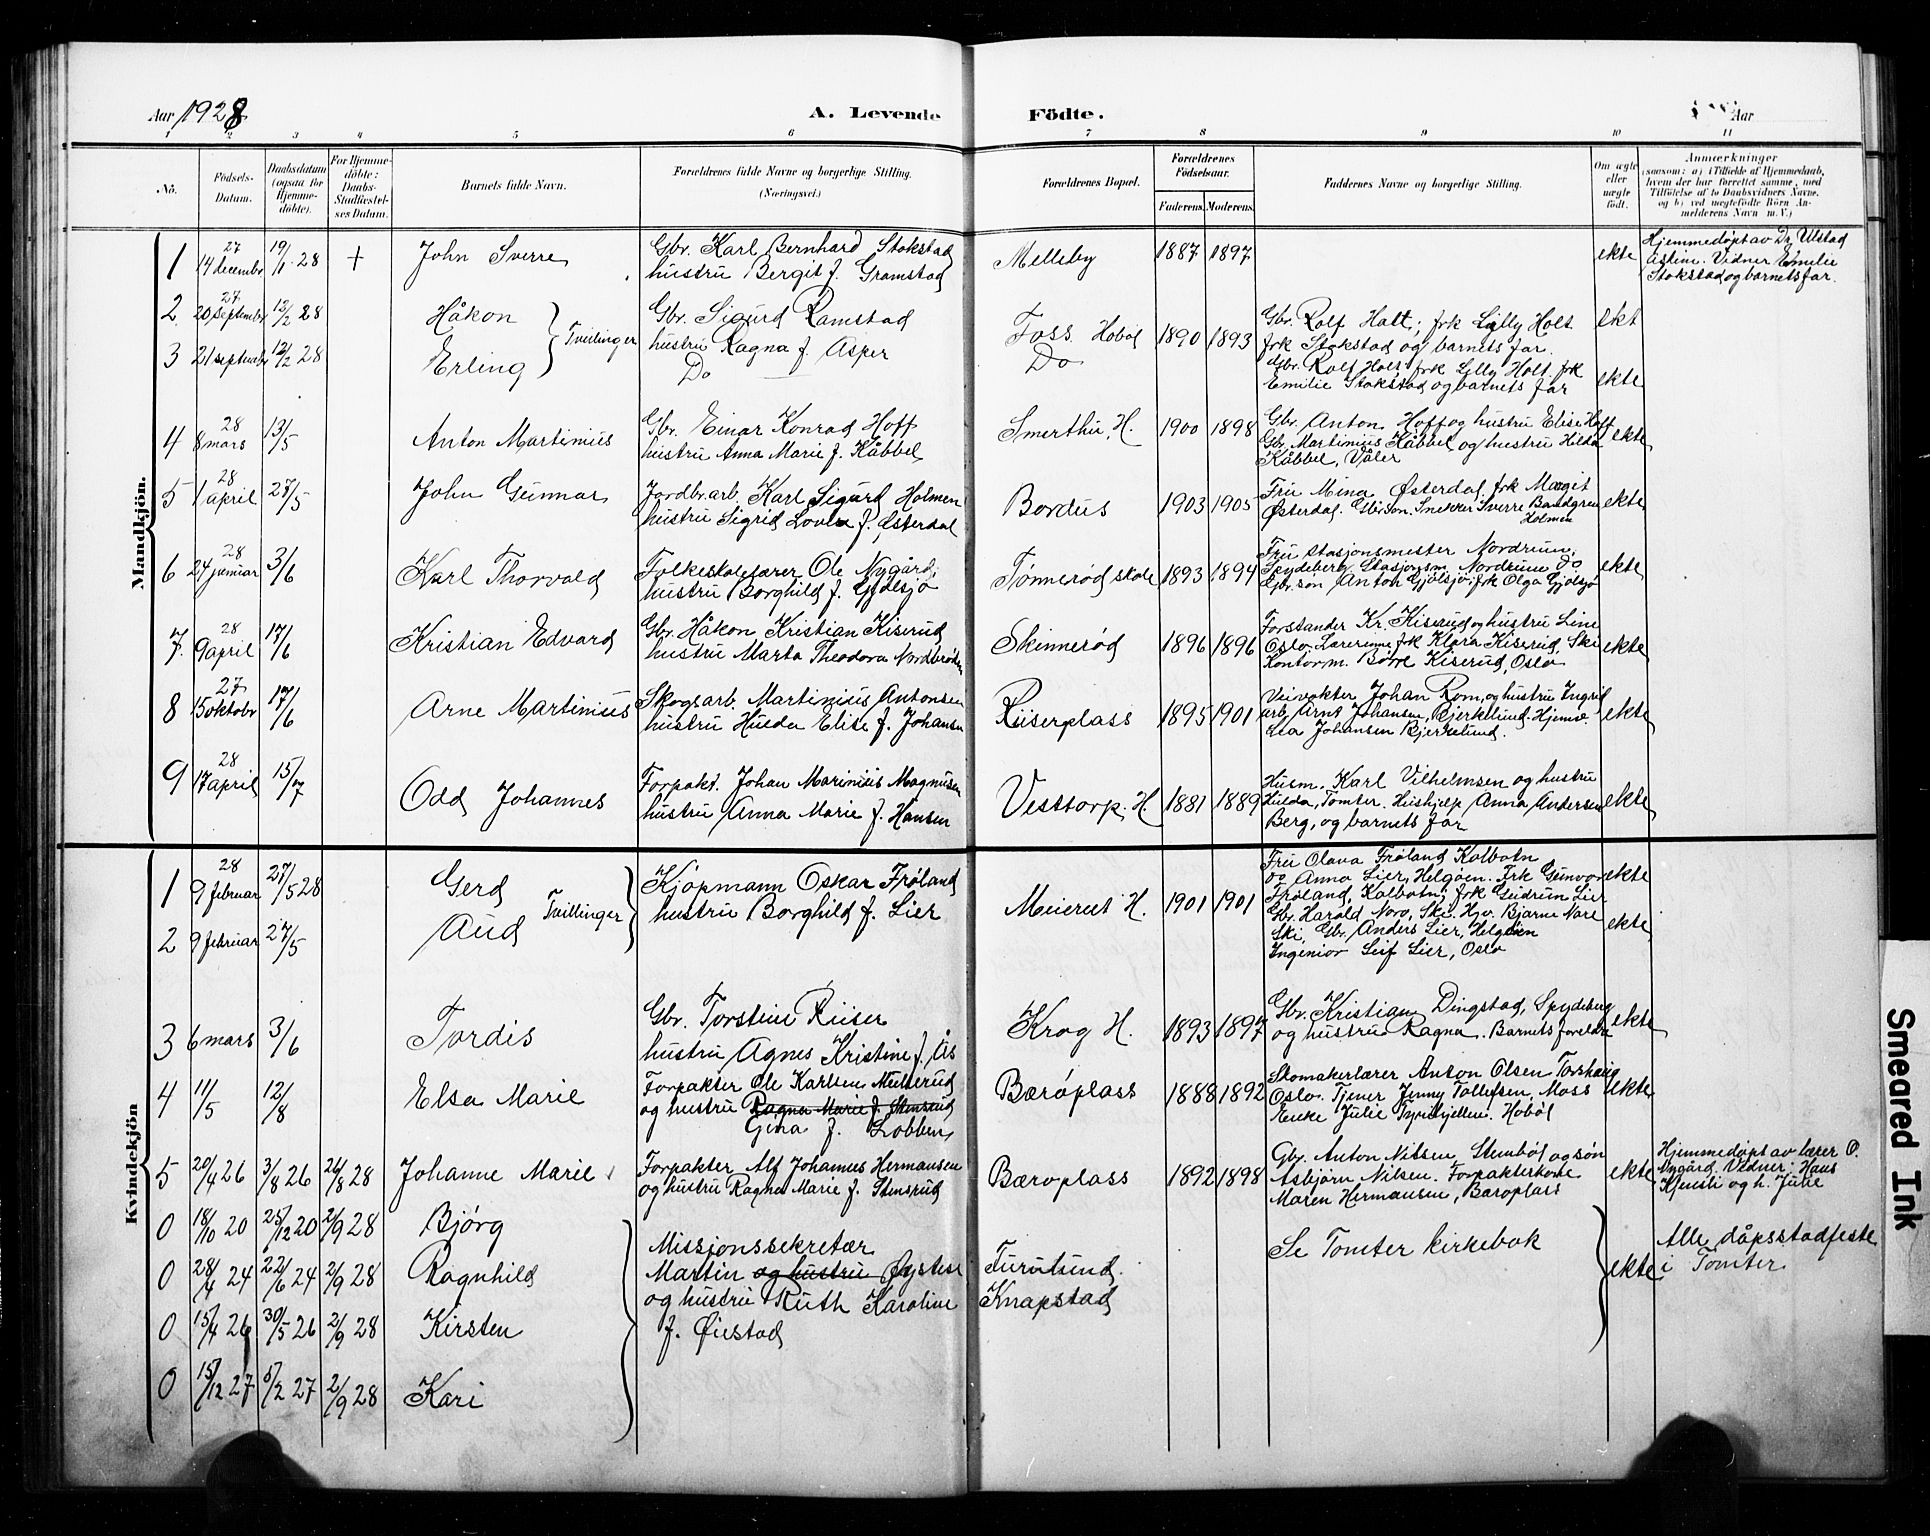 Aar 1928
A. Levende
Födte.
Aar
1 2 3 4 5 6 7 8 9 10 11
No.
Födsels-Datum.
Daabsdatum (ogsaa for Hjemmedöbte).
For Hjemmedöbte: Daabs-Stadfæstelses Datum.
Barnets fulde Navn.
Forældrenes fulde Navne og borgerlige Stilling.
(Næringsvei.)
Forældrenes Bopæl.
Forældrenes Födselsaar.
Faderens. Moderens.
Faddernes Navne og borgerlige Stilling.
Om ægte eller uægte födt.
Anmærkninger
(saasom: a) i Tilfælde af Hjemmedaab, hvem der har forrettet samme, med Tilföielse af to Daabsvidners Navne. og b) ved uægtefödte Börn Anmelderens Navn m. V.)
Mandkjön.
1 27 14 decembr 19/1 28 + John Sverre Gbr. Karl Bernhard Stokstad
hustru Bergit f. Gramstad
Melleby 1887 1897 ekte Hjemmedøpt av Dr Ulstad
Vidner Emilie
Stokstad og barnets far.
2. 27 20 septembr 12/2 28 Håkon Tvillinger Gbr. Sigurd Ramstad
hustru Ragna f. Asper
Foss Hobøl 1890 1893 Gbr. Rolf Holt; frk Lilly Holt
frk Stokstad og barnets far. ekt
3 21 septembr 12/2 28 Erling Do
Do Gbr. Rolf Holt, frk Lilly Holt. frk
Emilie Stokstad og barnets far ekte
4 28 8 mars 13/5 Anton Martinius Gbr. Einar Konrad Hoff
hustru Anna Marie f. Kåbbel
Smerthu, H. 1900 1898 Gbr. Anton Hoff og hustru Elise Hoff
Gbr. Martinius Kåbbel og hustru Hilda
Kåbbel, Våler ekte
5 28 1 april 27/5 John Gunnar Jordbr.arb. Karl Sigurd Holmen
hustru Sigrid Lovise f. Østerdal
Bordus 1903 1905 Fru Mina Østerdal, frk Margit
Østerdal. Gbrsøn. Snekker Sverre
Holmen ekte
6 28 24 januar 3/6 Karl Thorvald Folkeskolelærer Ole Nygård,
hustru Borghild f. Gjølsjø
Tønnerød skole 1893 1894 Fru stasjonsmester Nordrum,
Spydeberg. Stasjonsm. Nordrum do
Gbr.søn Anton Gjølsjø, frk Olga Gjølsjø ekte
7. 28 9 april 17/6 Kristian Edvard Gbr. Håkon Kristian Kiserud
hustru Marta Theodora Nordbrøden
Skinnerød 1896 1896 Forstander Kr. Kiserud og hustru Line
Oslo. Lærerinne frk Klara Kiserud, Ski
Kontorm. Børre Kiserud, Oslo ekte
8 27 15 oktobr 17/6 Arne Martinius Skogsarb. Martinius Antonsen
hustru Hulda Elise f. Johansen
Riiserplass 1895 1901 Veivokter Johan Rom, og hustru Ingrid
arb. Arnt Johansen, Bjerkelund. Hjemv.
Lea Johansen Bjerkelund. ekte
9 28 17 april 15/7 Odd Johannes Forpakt. Johan Marinius Magnusen
hustru Anna Marie f. Hansen
Vesttorp. H. 1881 1889 Husm. Karl Vilhelmsen og hustru
Hulda, Tomter. Hushjelp Anna Andersen
Berg, og barnets far ekte
Kvindekjön
1 28 9 februar 27/5 28 Gerd Tvillinger Kjøpmann Oskar Frøland
hustru Borghild f. Lier
Meieriet H. 1901 1901 Fru Olava Frøland Kolbotn
do Anna Lier, Helgøen. Frk Gunvor
Frøland, Kolbotn; frk Gudrun Lier ekte
2 9 februar 27/5 Aud Gbr. Harald Nore, Ski. Hjv. Bjarne Nore
Ski, Gbr. Anders Lier, Helgøien
Ingeniør Leif Lier, Oslo ekte
3 6 mars 3/6 Tordis Gbr. Torstein Riiser
hustru Agnes Kristine f. Ås
Krog H. 1893 1897 Gbr. Kristian Dingstad, Spydeberg
og hustru Ragna. Barnets foreldre ekte
4 11/5 12/8 Elsa Marie Forpakter Ole Karlsen Mellerud
og hustru Ragna Marie f. Stensrud
Gina f. Lobben
Bærøplass 1888 1892 Skomakerlærer Anton Olsen Torshaug
Oslo. Tjener Jenny Tollefsen, Moss
Enke Julie Tyrihjellen. Hobøl ekte
5 20/4 26 3/8 26 26/8 28 Johanne Marie Forpakter Alf Johannes Hermansen
og hustru Ragna Marie f. Stensrud
Bærøplass 1892 1898 Gbr. Anton Nilsen, Stenbøl og søn
Asbjørn Nilsen. Forpakterkone
Maren Hermansen, Bærøplass ekte Hjemmedøpt av lærer O.
Nygård. Vidner: Hans
og h. Julie
0 18/10 20 25/12 20 2/9 28 Bjørg Missjonssekretær
Martin og hustru Øystese
og hustru Ruth Karoline
f. Øiestad
Furulund
Knapstad
Se Tomter kirkebok ekte Alle dåpsstadfeste
i Tomter
0 28/4 24 22/6 24 2/9 28 Ragnhild
0 15/4 26 30/5 26 2/9 28 Kirsten
0 15/12 27 5/2 27 2/9 28 Kari
Smeared Ink